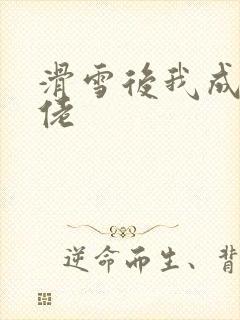 滑雪後我成
佬
逆命而生、背